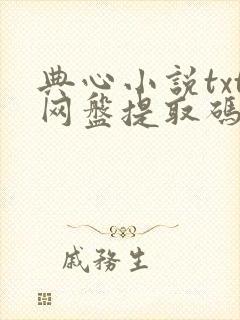 典心小説txt
网盤提取碼
戚務生